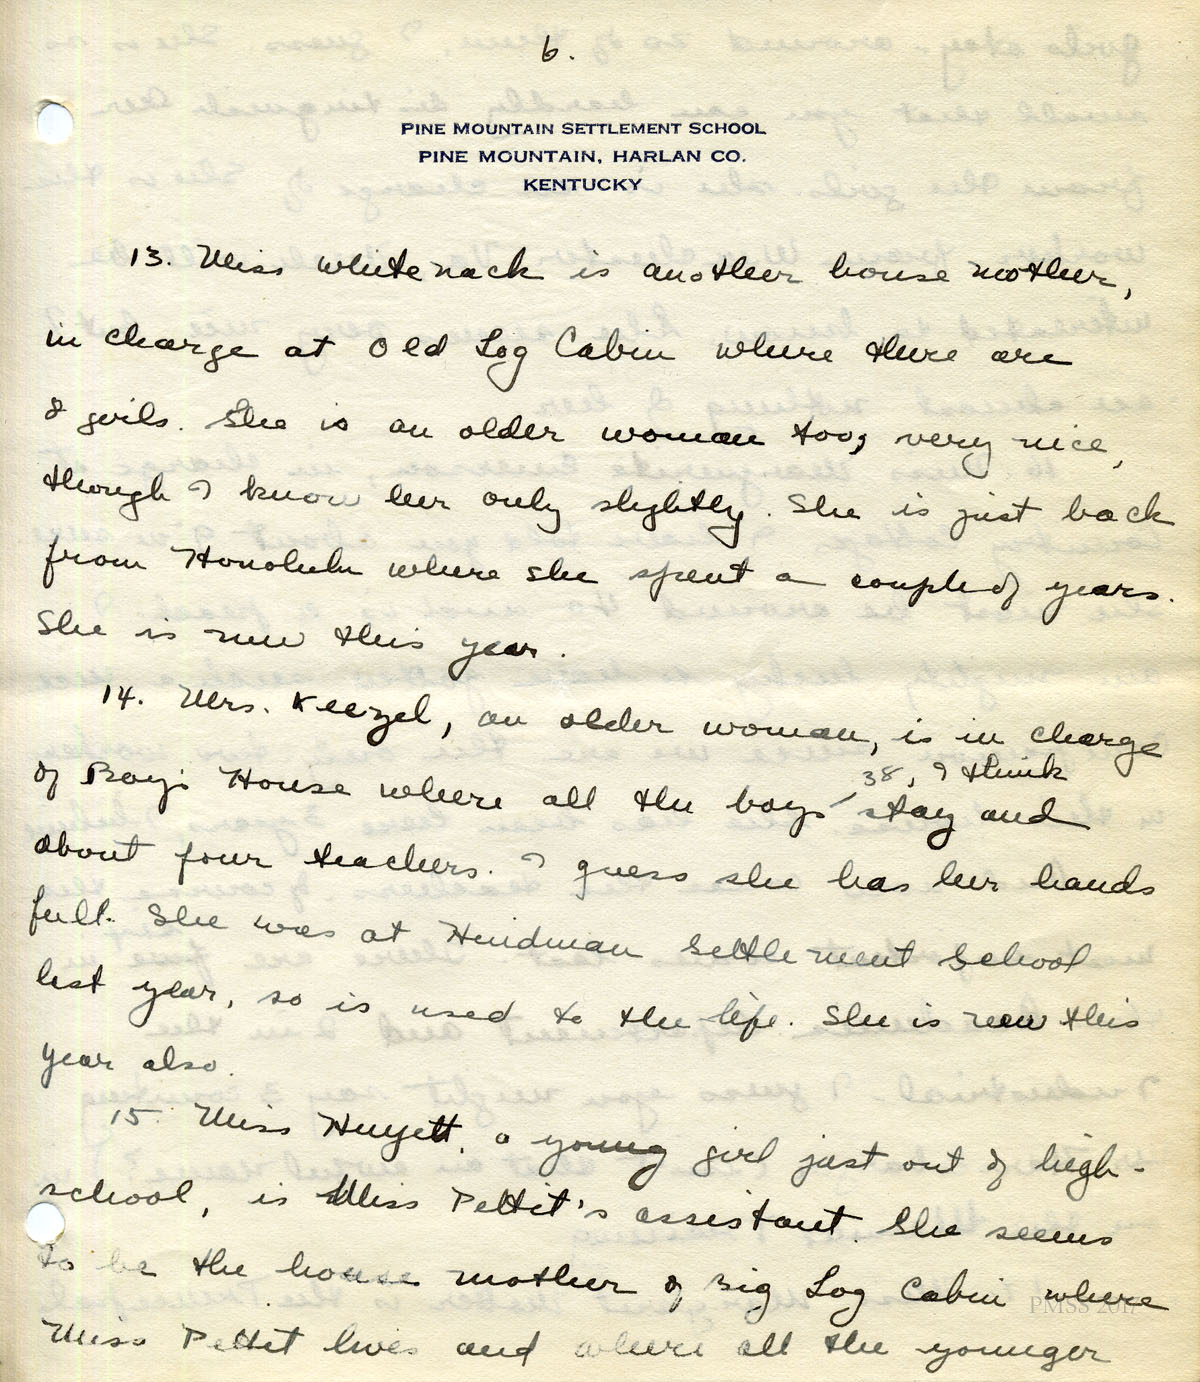 6.
PINE MOUNTAIN SETTLEMENT SCHOOL
PINE MOUNTAIN, HARLAN CO.
KENTUCKY
13. Miss Whitenack is another house mother,
in charge at Old Log Cabin where there are
8 girls. She is an older woman too, very nice,
though I know her only slightly. She is just back
from Honolulu where she spent a couple of years.
She is new this year.
14. Mrs. Keezel, an older woman, is in charge
38, I think
of Boys House where all the boys stay and
about four teachers. I guess she has her hands
full. She was at Hindman Settlement School
last year, so is used to the life. She is new this
year also.
15. Miss Huyett, a young girl just out of high-
school, is Miss Pettit's assistant. She seems
to be the house mother of Big Log Cabin where
PMSS 2017
Miss Pettit lives and where all the younger